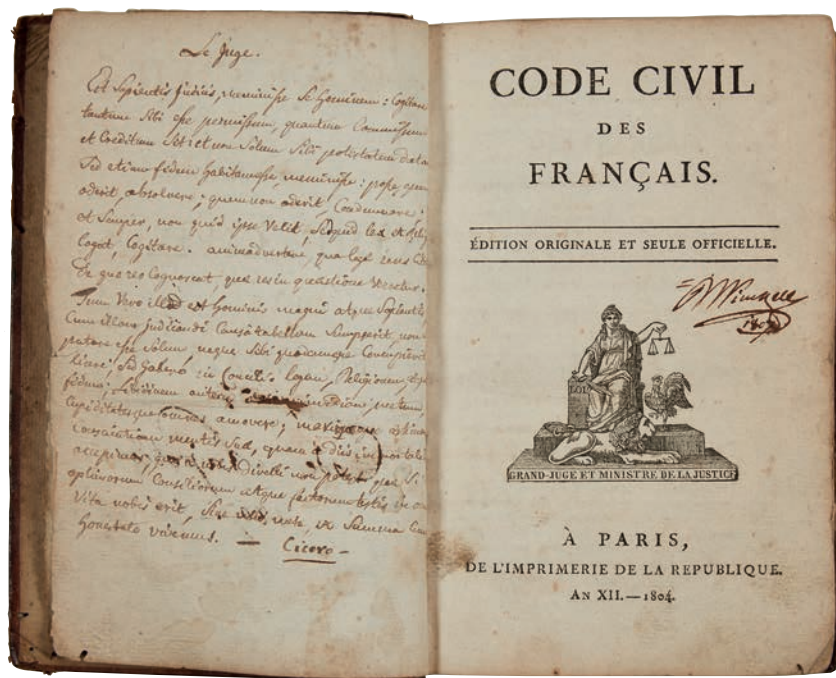 Le Juge.
Est Sapientis Judicis, meminisse se hominem: Cogitare
tantum Sibi esse permissum, quantum Commissum
et Creditum Sit; et non Solum Sibi potestatem datam
Sed etiam fidem habitam esse, meminisse: posse, quem
oderit, absolvere; quem non oderit, Condemnare;
et Semper, non quid ipse Velit, Sed quid lex et Relig
Cogat, Cogitare. animadvertere, qua lege reus Ci
De quo reo Cognoscat, quae res in quaestione Versetur.
Tum Vero illud est hominis magni atque Sapientis,
Cum illam judicandi Causa tabellam Sumpserit, non
putare esse Solum, neque Sibi quodcumque Concupierit
licere, Sed habere in Consilio legem, Religionem,
fidem; Libidinem autem invidiam, metum,
Cupiditatesque omnes amovere; maximique aestimare
Conscientiam mentis Suae, quam a diis immortali
accepimus, quae a nobis divelli non potest. quae Si
optimorum Consiliorum atque factorum testis in om
Vita nobis erit, Sine ullo metu, et Summa Cum
honestate vivemus. —
Cicero —
CODE CIVIL
DES
FRANÇAIS.
ÉDITION ORIGINALE ET SEULE OFFICIELLE.
LOI
GRAND-JUGE ET MINISTRE DE LA JUSTICE
À PARIS,
DE L'IMPRIMERIE DE LA REPUBLIQUE.
AN XII.—1804.